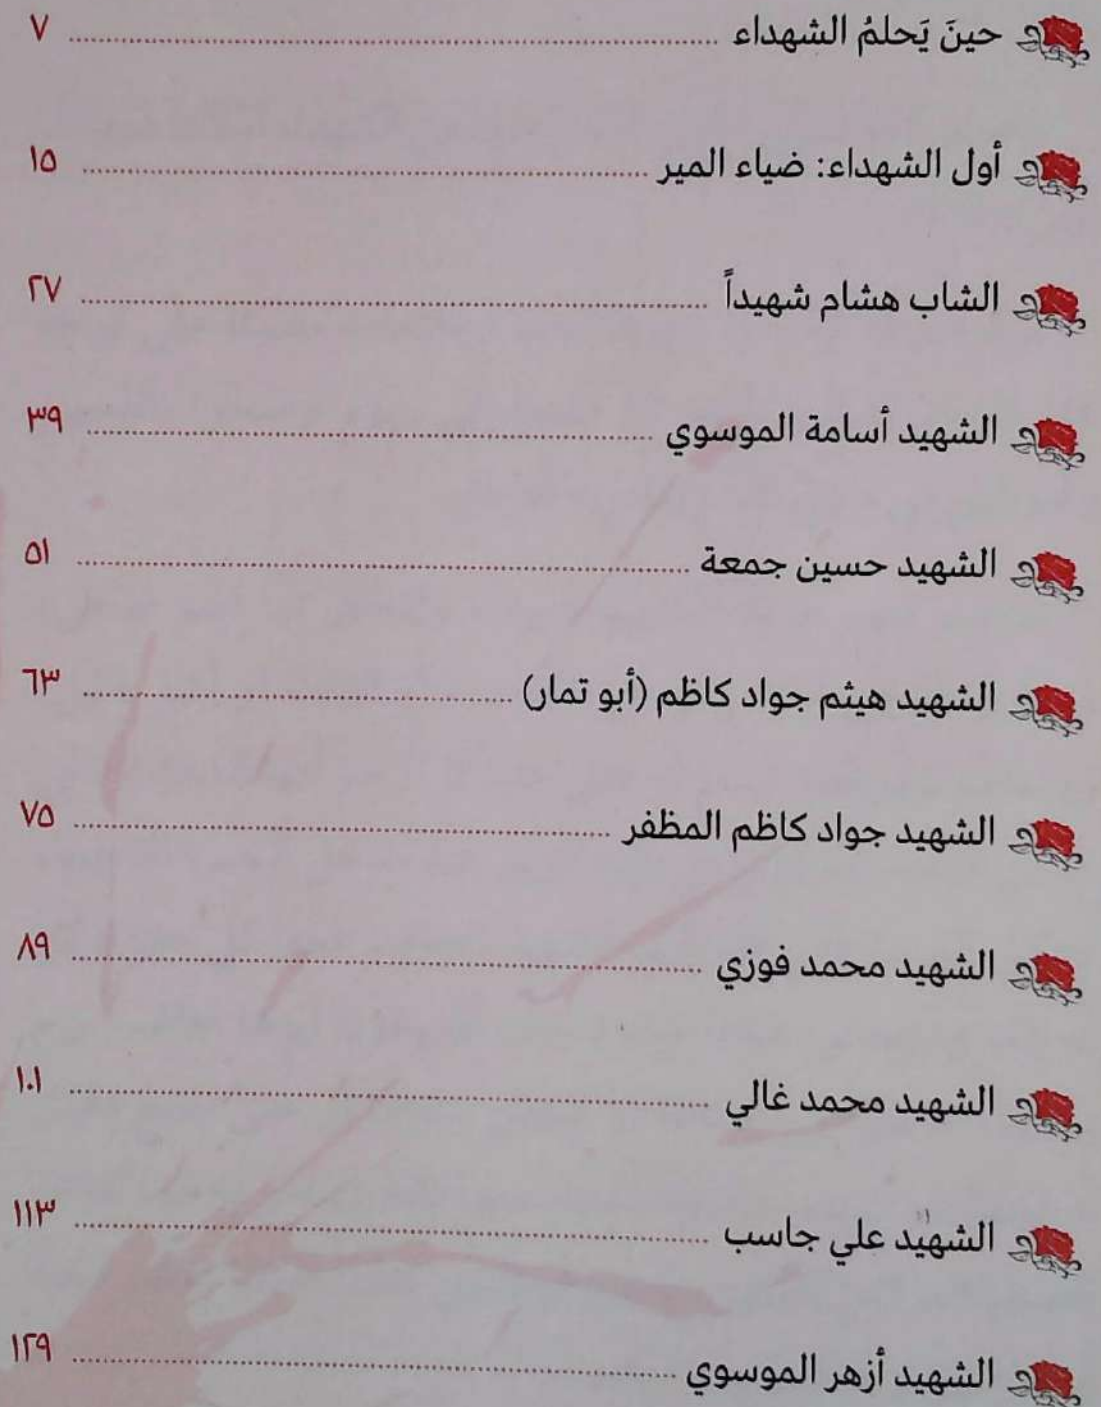 حينَ يَحلمُ الشهداء ........ ٧
أول الشهداء: ضياء المير ........ ١٥
الشاب هشام شهيداً ........ ٢٧
الشهيد أسامة الموسوي ........ ٣٩
الشهيد حسين جمعة ........ ٥١
الشهيد هيثم جواد كاظم (أبو تمار) ........ ٦٣
الشهيد جواد كاظم المظفر ........ ٧٥
الشهيد محمد فوزي ........ ٨٩
الشهيد محمد غالي ........ ١٠١
الشهيد علي جاسب ........ ١١٣
الشهيد أزهر الموسوي ........ ١٢٩